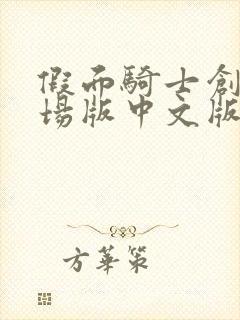 假面騎士創
場版中文版
方華策